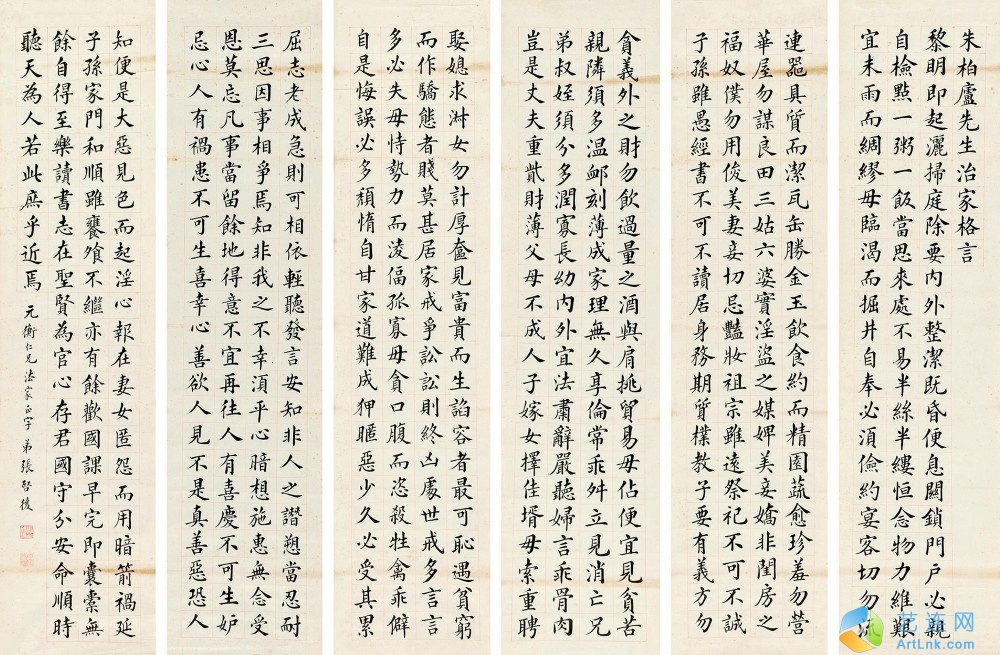 朱柏廬先生治家格言
黎明即起灑掃庭除要內外整潔既昏便息關鎖門戶必親
自檢點一粥一飯當思來處不易半絲半縷恒念物力維艱
宜未雨而綢繆毋臨渴而掘井自奉必須儉約宴客切勿流
連器具質而潔瓦缶勝金玉飲食約而精園蔬愈珍羞勿營
華屋勿謀良田三姑六婆實淫盜之媒婢美妾嬌非閨房之
福奴僕勿用俊美妻妾切忌豔妝祖宗雖遠祭祀不可不誠
子孫雖愚經書不可不讀居身務期質樸教子要有義方勿
貪義外之財勿飲過量之酒與肩挑貿易毋佔便宜見貧苦
親隣須多温卹刻薄成家理無久享倫常乖舛立見消亡兄
弟叔姪須分多潤寡長幼內外宜法肅辭嚴聽婦言乖骨肉
豈是丈夫重貲財薄父母不成人子嫁女擇佳壻毋索重聘
娶媳求淑女勿計厚奩見富貴而生諂容者最可恥遇貧窮
而作驕態者賤莫甚居家戒爭訟訟則終凶處世戒多言言
多必失毋恃勢力而淩偪孤寡毋貪口腹而恣殺牲禽乖僻
自是悔誤必多頹惰自甘家道難成狎暱惡少久必受其累
屈志老成急則可相依輕聽發言安知非人之譖愬當忍耐
三思因事相爭焉知非我之不幸須平心暗想施惠無念受
恩莫忘凡事當留餘地得意不宜再往人有喜慶不可生妒
忌心人有禍患不可生喜幸心善欲人見不是真善惡恐人
知便是大惡見色而起淫心報在妻女匿怨而用暗箭禍延
子孫家門和順雖饔飧不繼亦有餘歡國課早完即囊橐無
餘自得至樂讀書志在聖賢為官心存君國守分安命順時
聽天為人若此庶乎近焉 元衡仁兄法家正字 弟張啓後
艺连网
ArtLnk.com